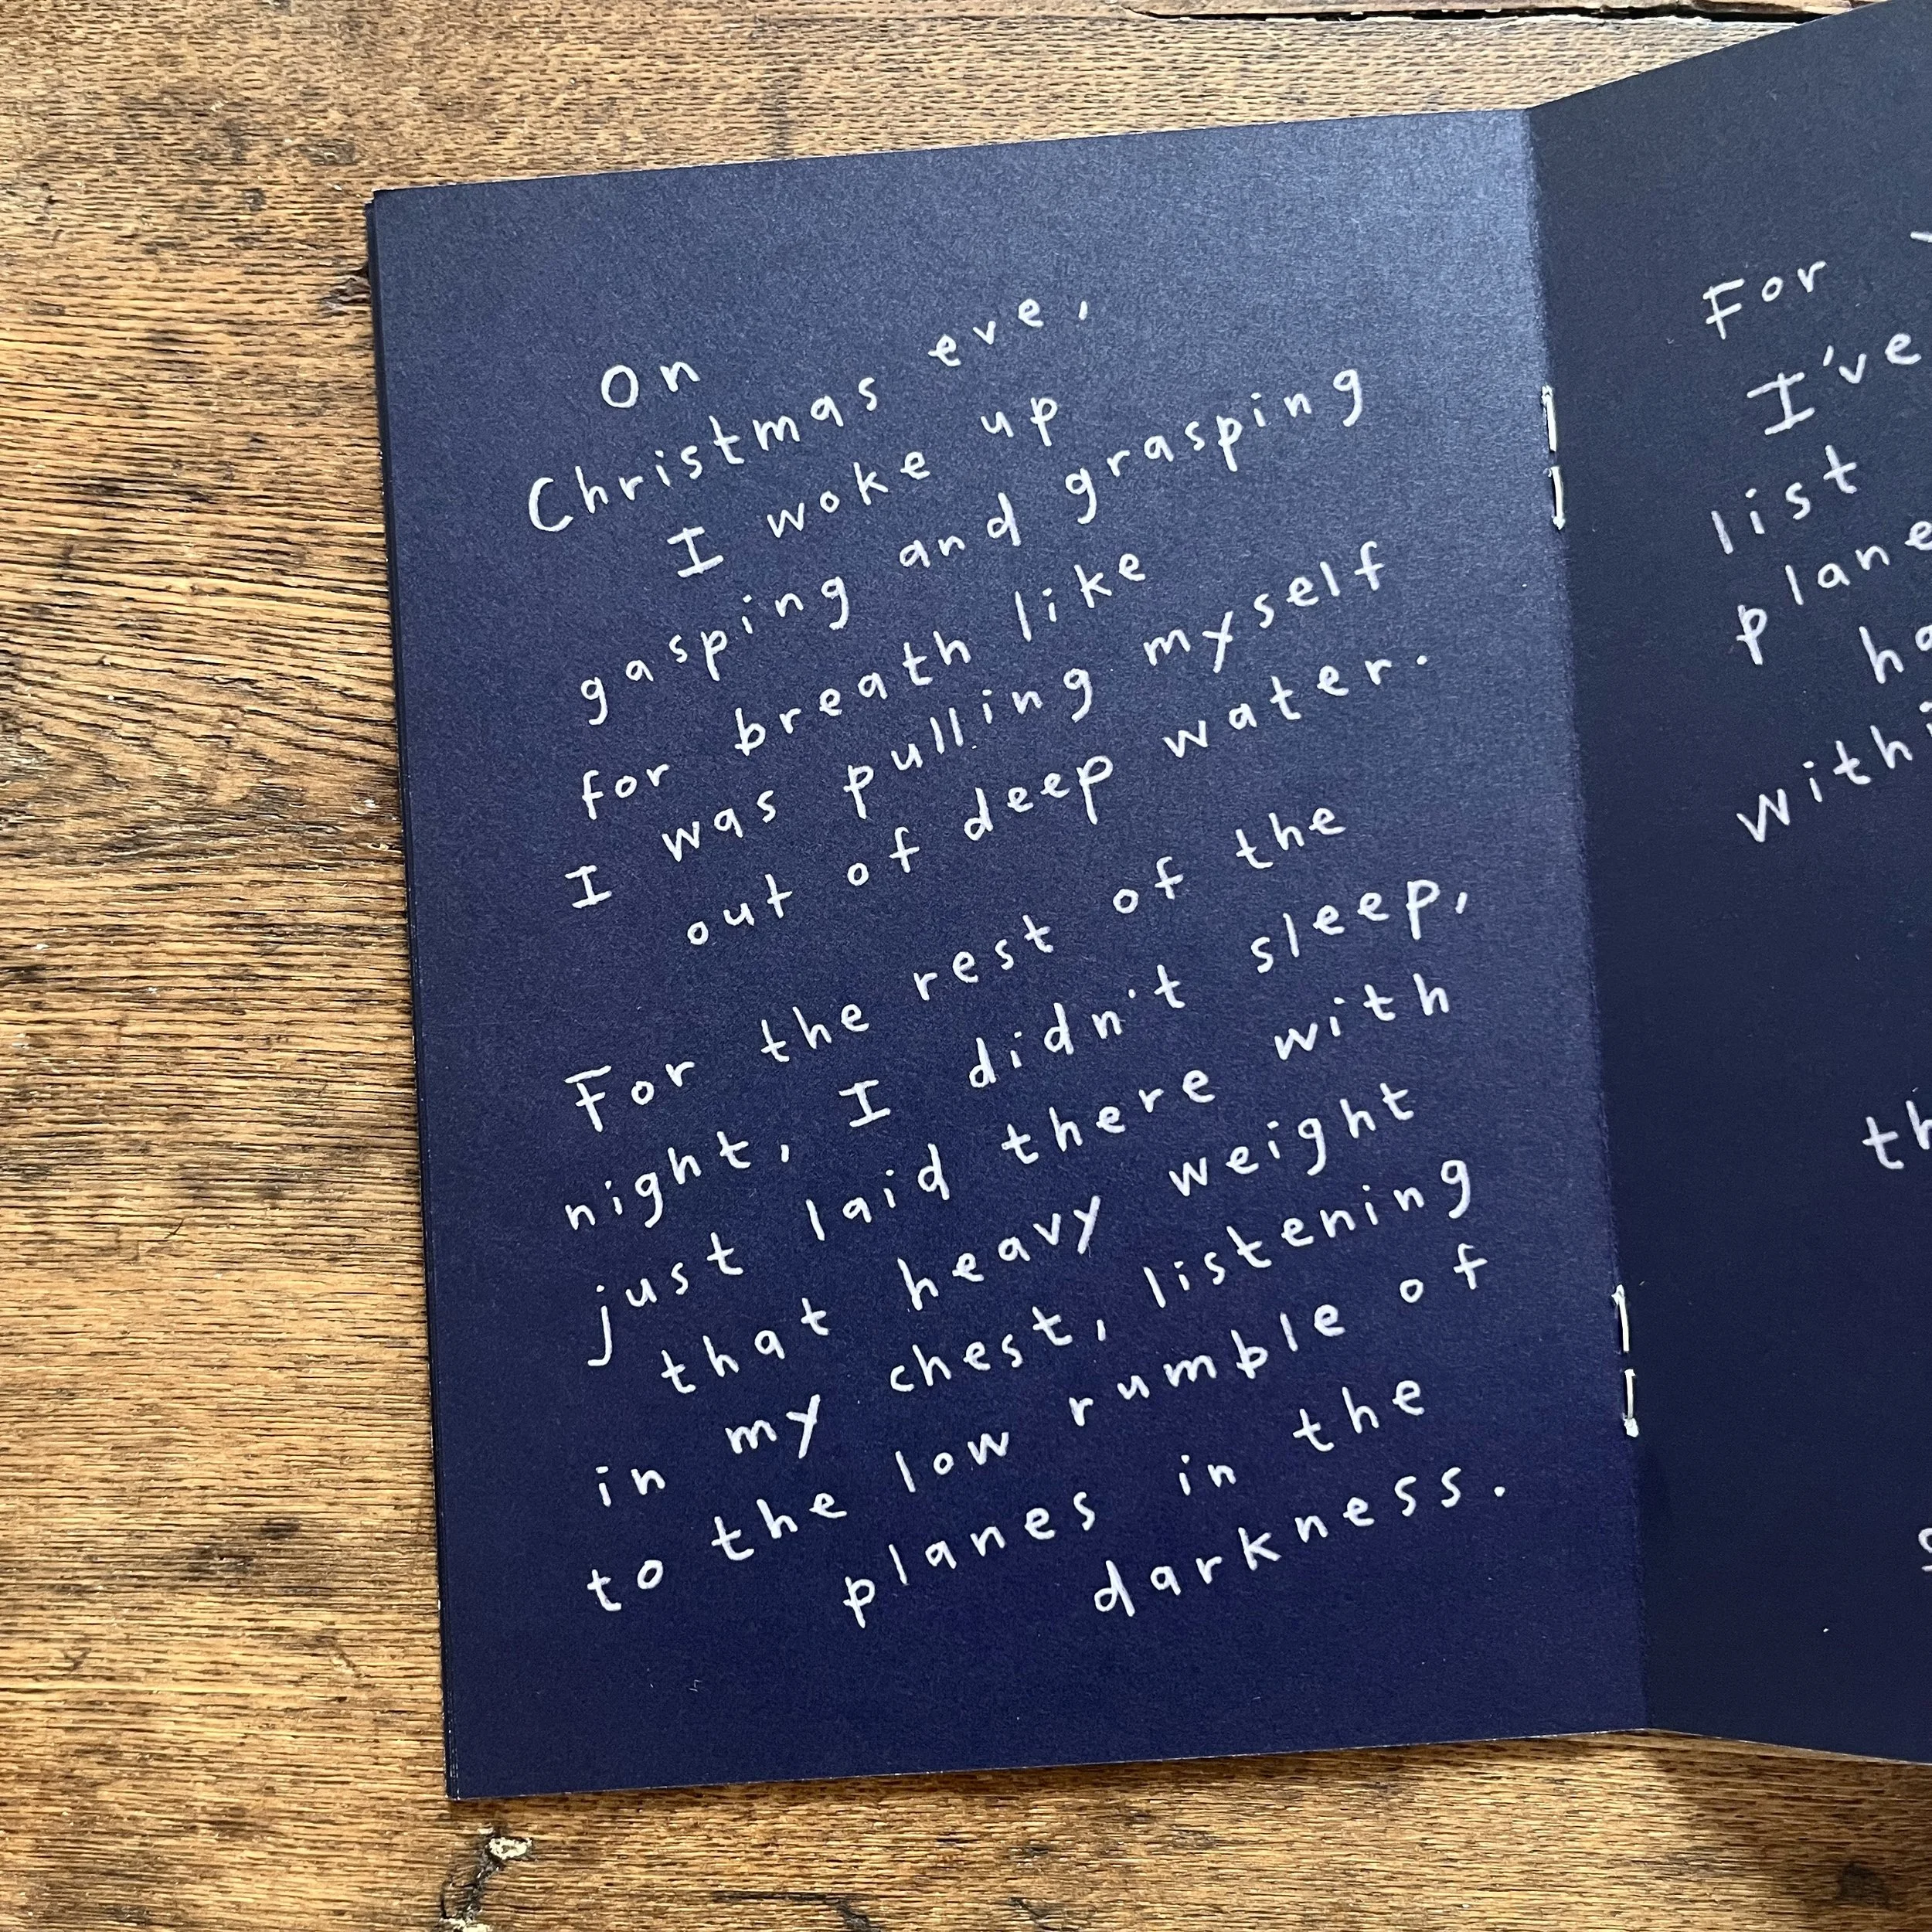 On
Christmas eve,
I woke up
gasping and grasping
for breath like
I was pulling myself
out of deep water.
For the rest of the
night, I didn't sleep,
just laid there with
that heavy weight
in my chest, listening
to the low rumble of
planes in the
darkness.
For
I've
list
plane
ha
withi
th